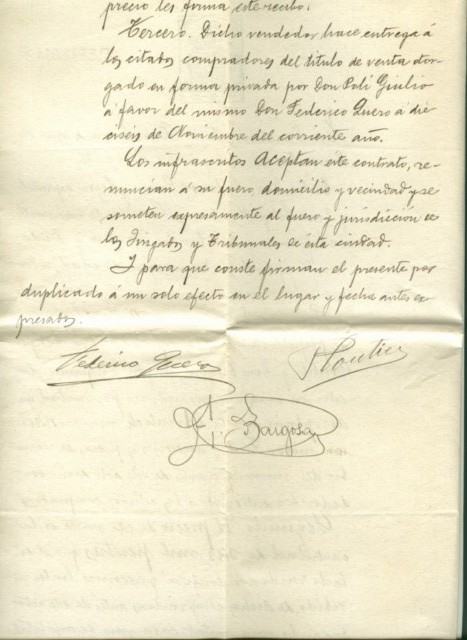 precio les forma este recibo.
Tercero. Dicho vendedor hace entrega á
los citados compradores del titulo de venta otor-
gado en forma privada por Don Poli Giulio
á favor del mismo Don Federico Quero á die-
ciseis de Noviembre del corriente año.
Los infrascritos aceptan este contrato, re-
nuncian á su fuero, domicilio y vecindad y se
someten expresamente al fuero y jurisdicción de
los Juzgados y Tribunales de esta ciudad.
Y para que conste firman el presente por
duplicado á un solo efecto en el lugar y fecha antes ex-
presados.
Federico Quero
Bargosa